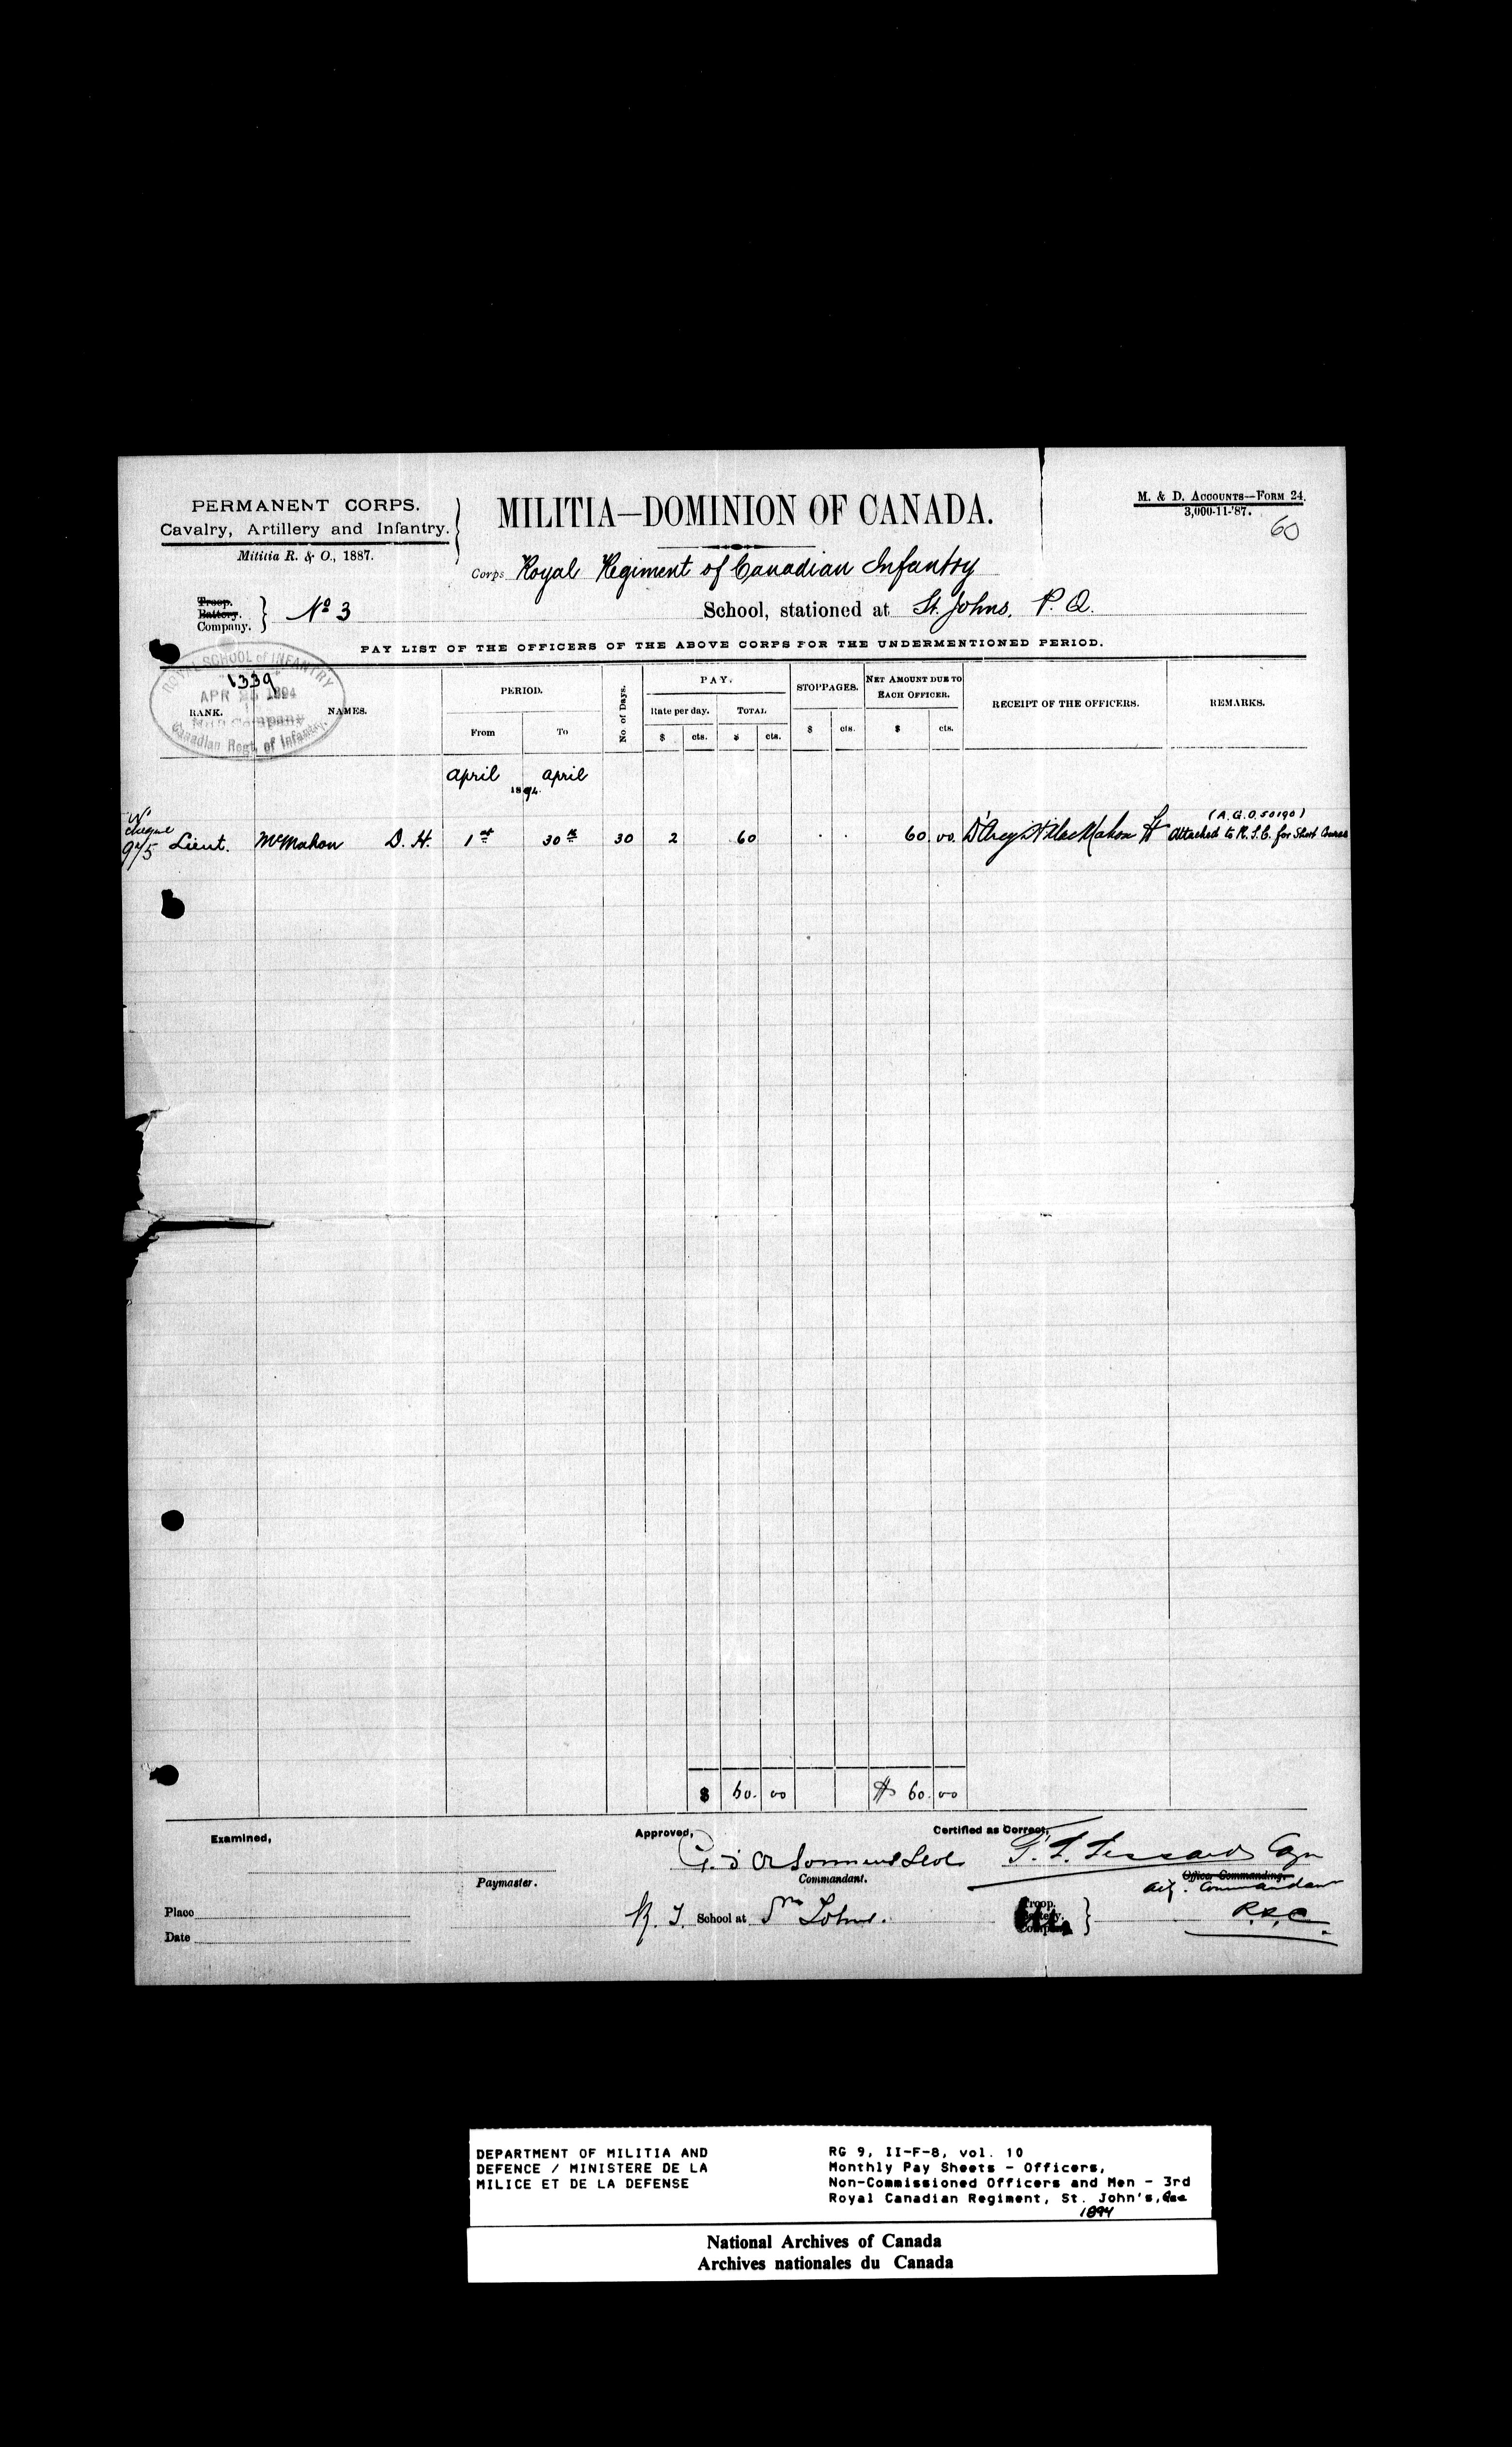 PERMANENT CORPS.
Cavalry, Artillery and Infantry.
Militia R. & O., 1887.
MILITIA—DOMINION OF CANADA.
M. & D. Accounts—Form 24.
3,000-11-'87.
60
Corps Royal Regiment of Canadian Infantry
Troop.
Battery.
Company.
No 3
School, stationed at St. Johns. P. Q.
PAY LIST OF THE OFFICERS OF THE ABOVE CORPS FOR THE UNDERMENTIONED PERIOD.
ROYAL SCHOOL of INFANTRY
1339
APR 1894
Company
Canadian Regt. of Infantry.
RANK.
NAMES.
PERIOD.
From
To
No. of Days.
PAY.
Rate per day.
TOTAL
$ cts. $ cts.
STOPPAGES.
$ cts.
Net Amount due to
Each Officer.
$ cts.
RECEIPT OF THE OFFICERS.
REMARKS.
April 1894 April
No
cheque
975
(A.G.O. 50190)
Lieut. McMahon D. H. 1st 30th 30 2 60 . . 60. 00. D'Arcy H MacMahon Lt Attached to R.S.C. for Short Course
$ 60. 00 $ 60. 00
Examined,
Approved,
Certified as Correct,
Paymaster.
Commandant.
Officer Commanding.
Commandant
Place
Date
School at St Johns.
Troop.
Battery.
Company.
DEPARTMENT OF MILITIA AND
DEFENCE / MINISTERE DE LA
MILICE ET DE LA DEFENSE
RG 9, II-F-8, vol. 10
Monthly Pay Sheets - Officers,
Non-Commissioned Officers and Men - 3rd
Royal Canadian Regiment, St. John's, Que
1894
National Archives of Canada
Archives nationales du Canada